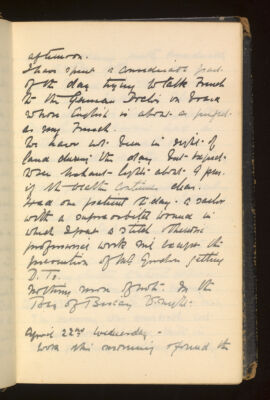 afternoon.
I have spent a considerable part
of the day trying to talk French
to the German Doctor on board
whose English is about as perfect
as my French.
We have not been in sight of
land during the day but expect
when Ushant light about 9 p.m.
if the weather continues clear.
Had one patient to-day - a sailor
with a supraorbital wound in
which I put a stitch. Otherwise
professional work nil except the
prevention of Mr getting
D. Ts.
Nothing more of note. In the
Bay of Biscay to-night.
April 22nd Wednesday -
Woke this morning & found the